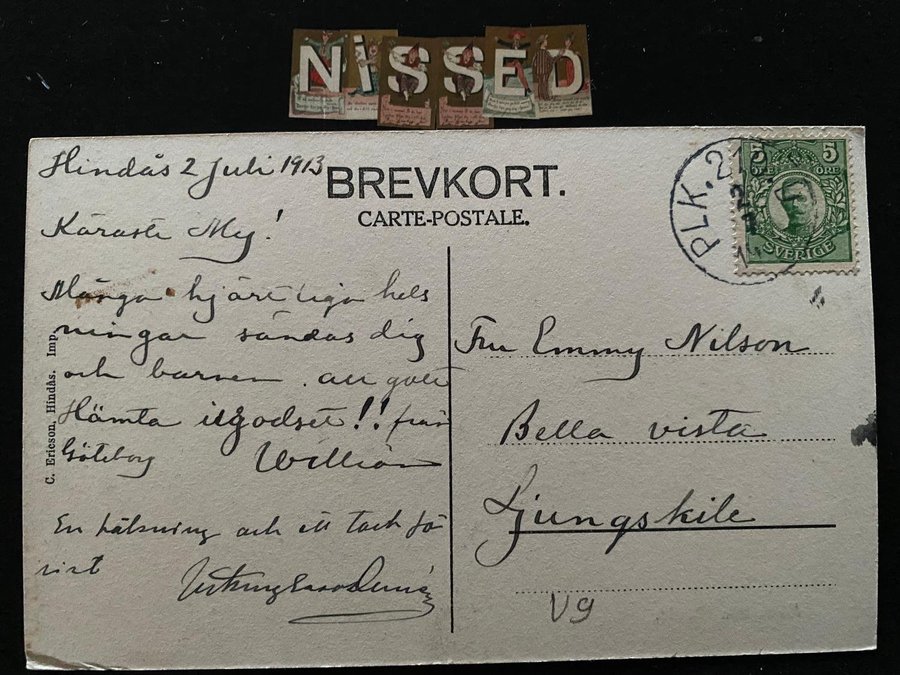 NiSSED
Hindås 2 Juli 1913
BREVKORT.
CARTE-POSTALE.
PLK. 21
5 5
ÖRE ÖRE
SVERIGE
Käraste My!
Många hjärtliga hels
ningar sändas dig
och barnen. allt gott
Hämta ilgodset!! från
Göteborg William
En hälsning och ett tack för
sist
C. Ericson, Hindås. Imp.
Fru Emmy Nilson
Bella vista
Ljungskile
V9